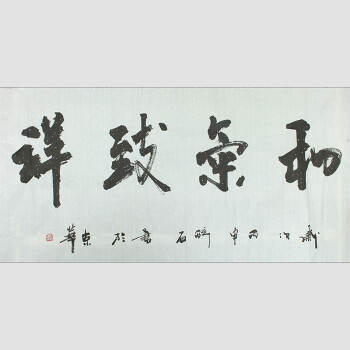 和氣致祥
歲次丙申石書於京華